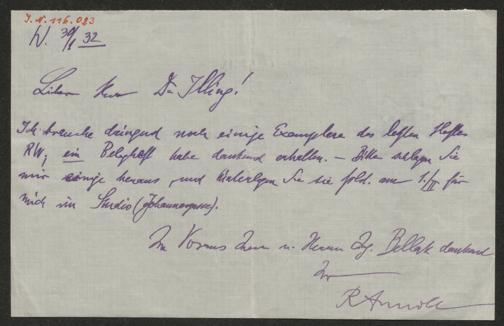 J.N. 116.083
W. 30/I 32
Lieber Herr Dr. Illing!
Ich brauche dringend noch einige Exemplare des letzten Heftes
RW, ein Belegheft habe dankend erhalten. – Bitte legen Sie
mir einige heraus, und hinterlegen Sie sie am 1./II für
mich im Studio (Johannesgasse).
Im Voraus Ihnen u. Herrn Bellak dankend
Ihr
R Arnold